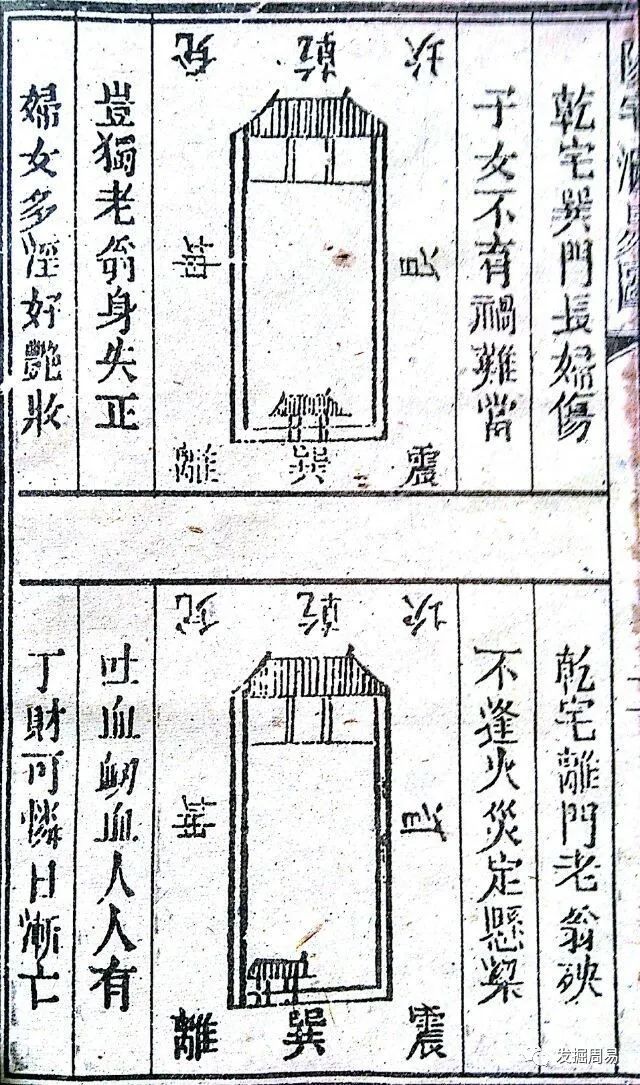 乾宅巽門長婦傷
子女不有禍難當
坎 乾 兌
艮 坤
震 巽 離
豈獨老翁身失正
婦女多淫好艷妝
乾宅離門老翁殃
不逢火災定懸梁
坎 乾 兌
艮 坤
震 巽 離
吐血衂血人人有
丁財可憐日漸亡
发掘周易